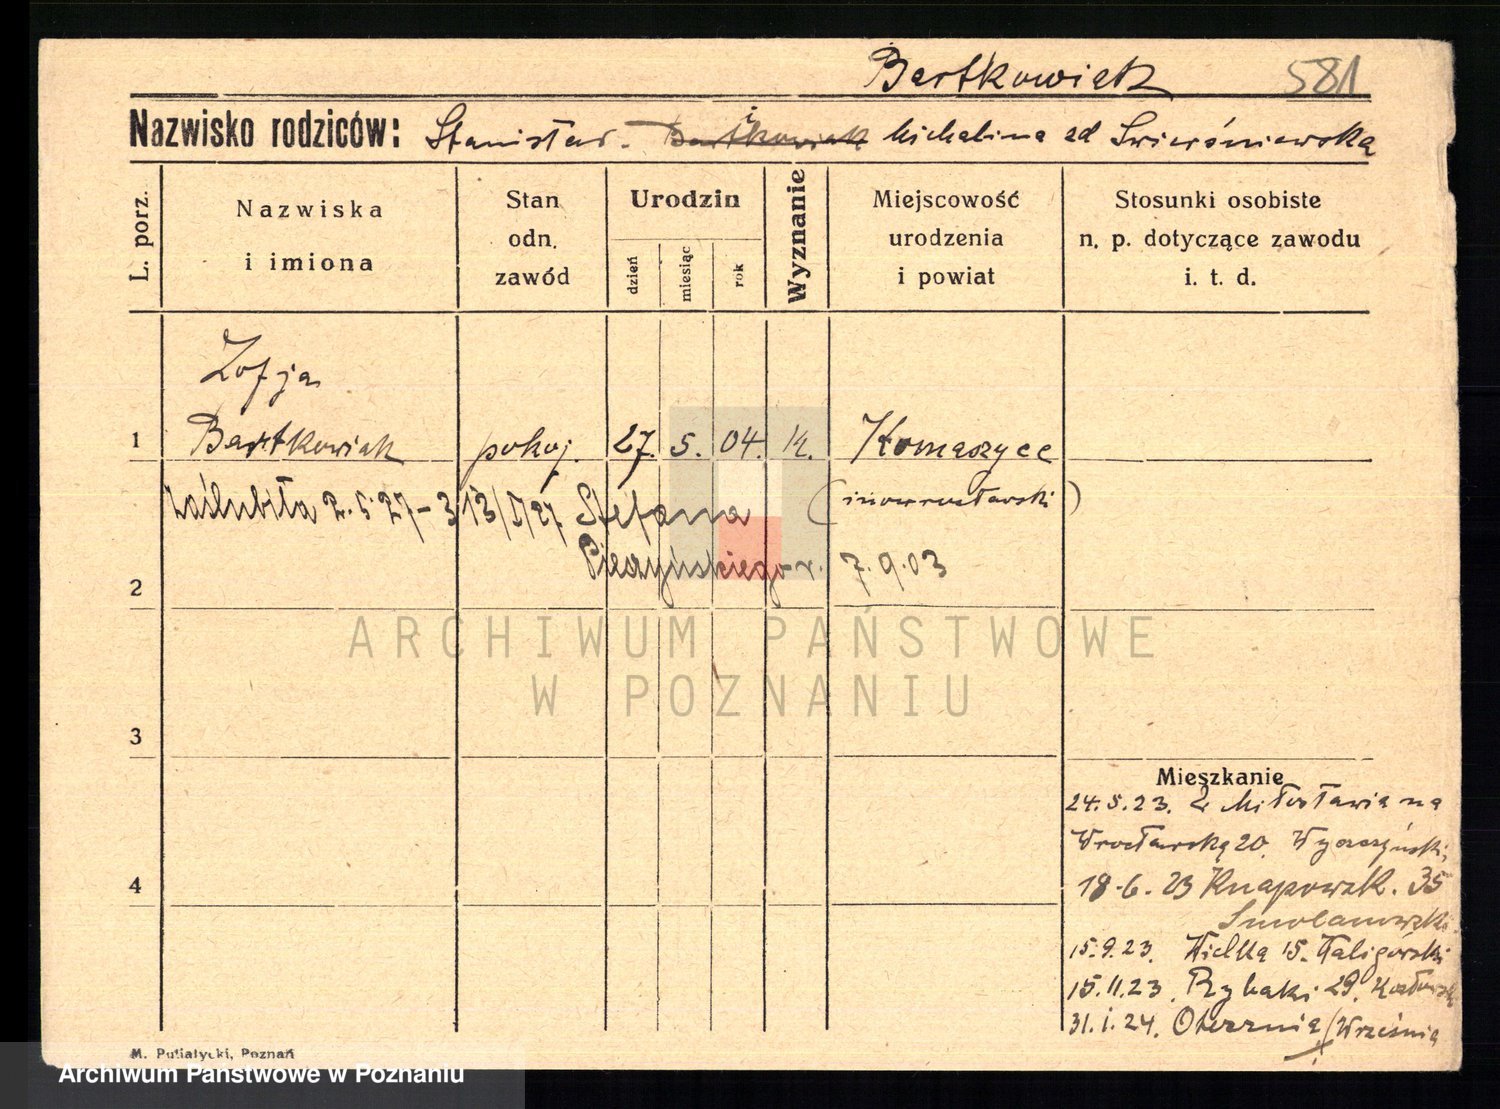 Bartkowiak 581
Nazwisko rodziców: Stanisław - i Bartkowiak Michalina zd Świerśniewska
L. porz.
Nazwiska
i imiona
Stan
odn.
zawód
Urodzin
dzień
miesiąc
rok
Wyznanie
Miejscowość
urodzenia
i powiat
Stosunki osobiste
n. p. dotyczące zawodu
i. t. d.
Zofja
1 Bartkowiak pokoj. 27. 5. 04. k. Komaszyce
zaślubiła 2.5.27 - 3 13/I/27 Stefana (inowrocławski)
r. 7.9.03
2
ARCHIWUM PAŃSTWOWE
W POZNANIU
3
Mieszkanie
24.5.23. z Miłosławia na
Wrocławską 20.
4
18.6.23 Knapowsk. 35
Smolanowski
15.9.23. Wielka 15. Waligórski
15.11.23. Rybaki 29.
31.1.24. (Września
M. Putiatycki, Poznań
Archiwum Państwowe w Poznaniu